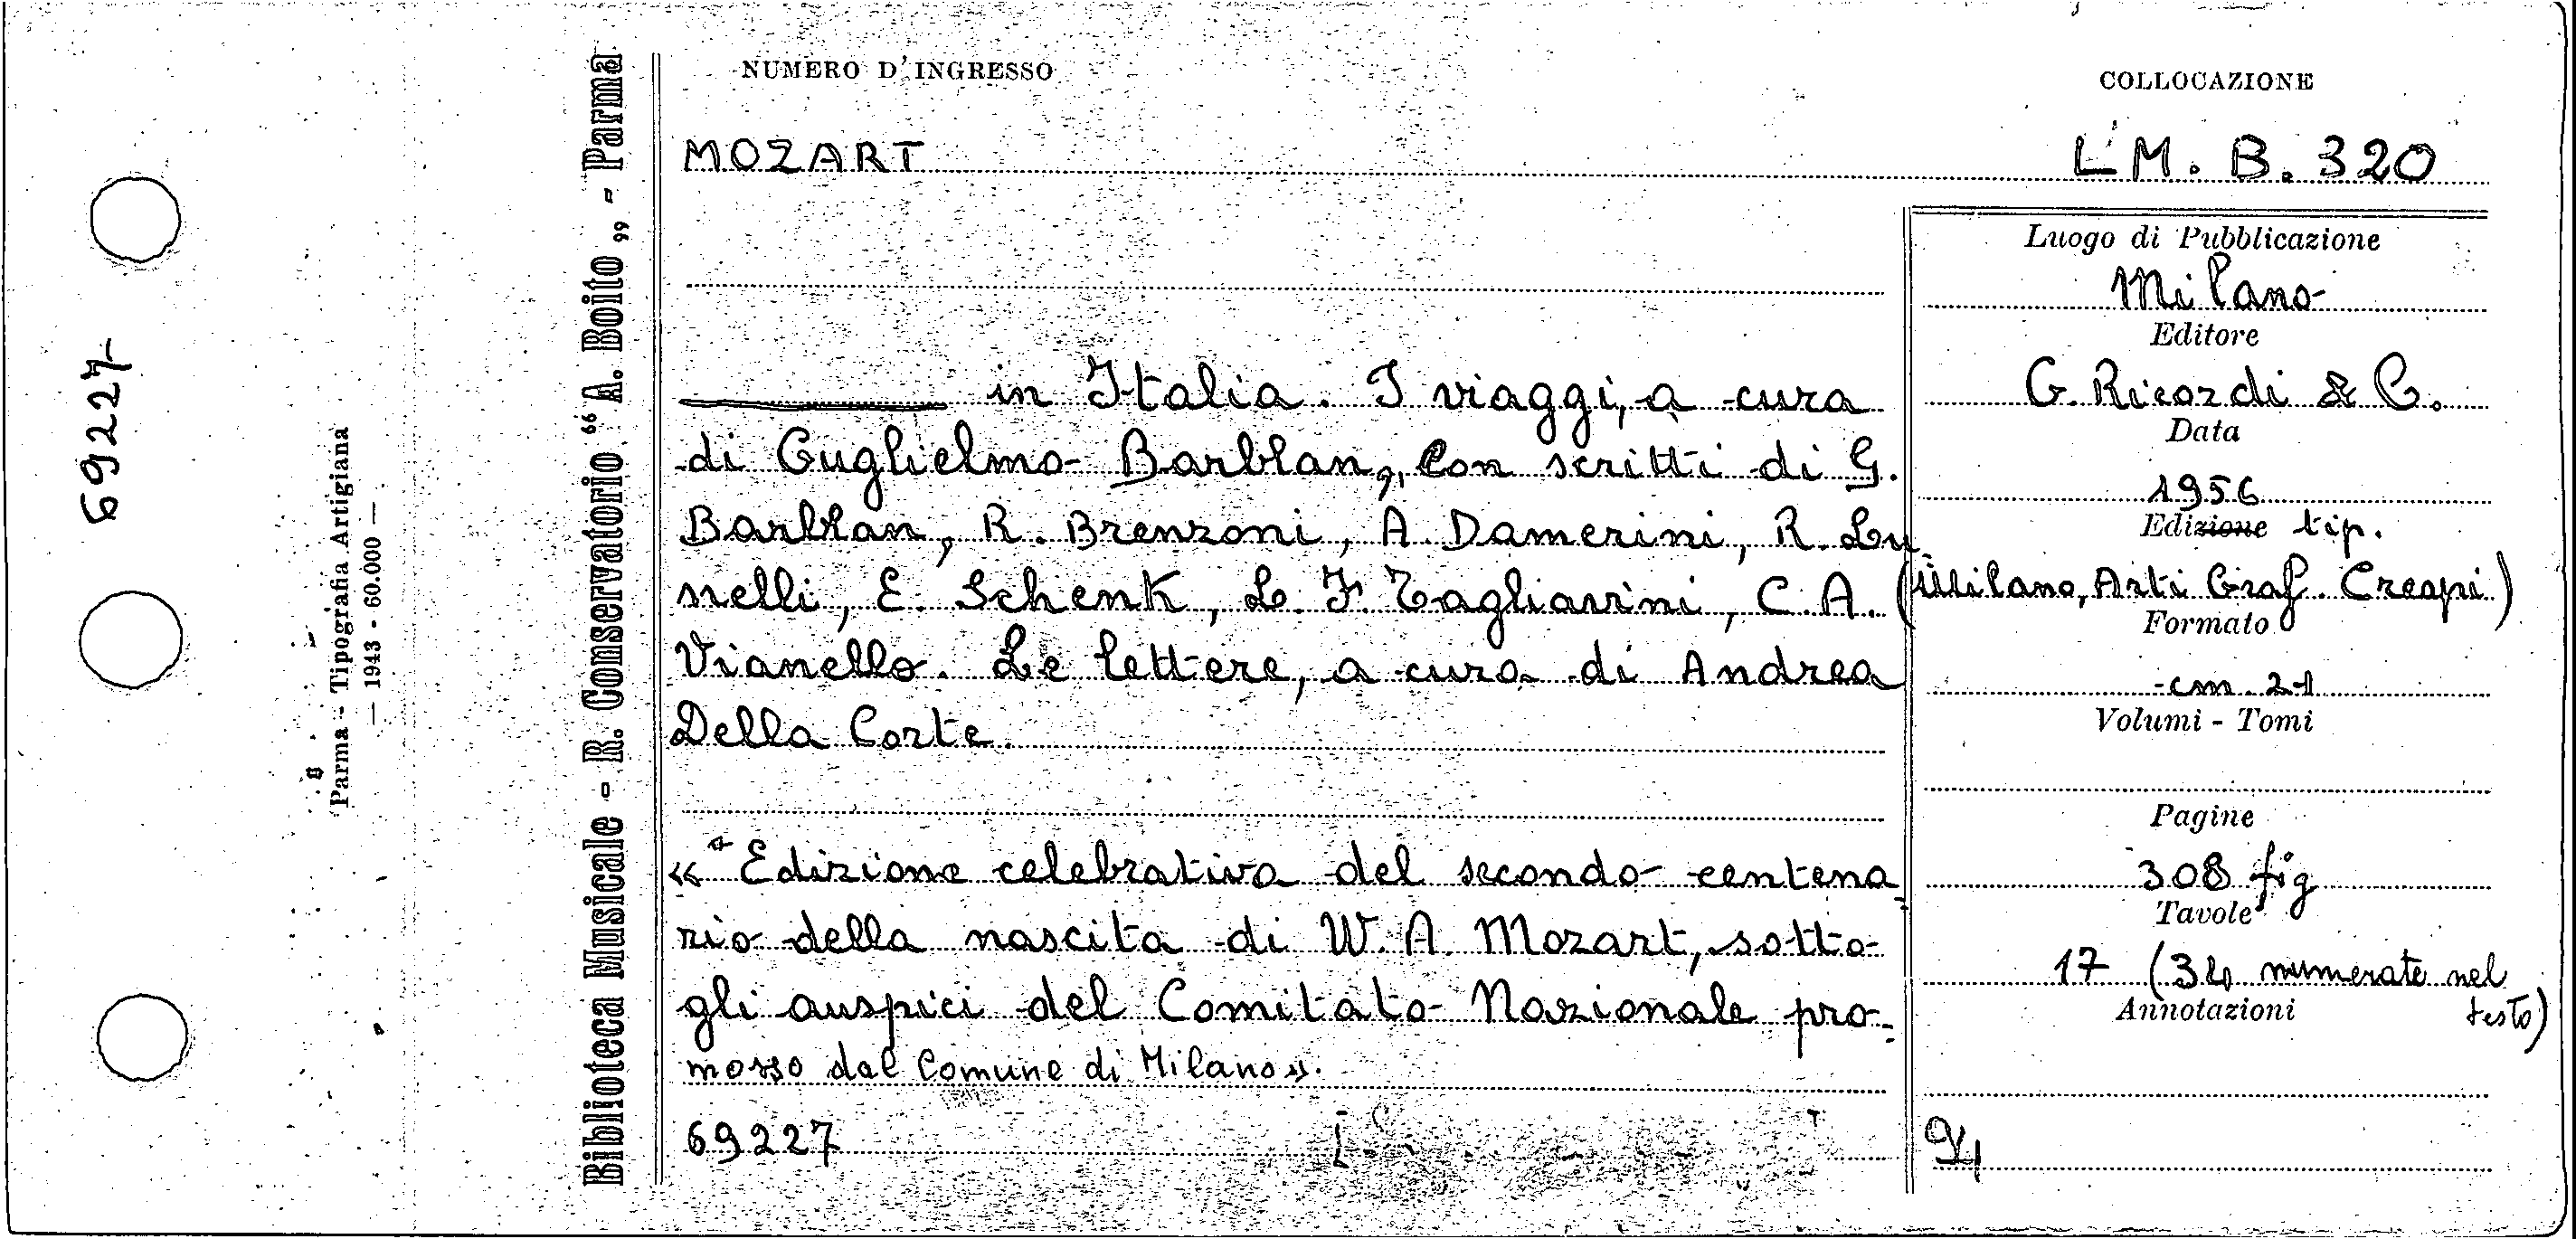 69227
Parma - Tipografia Artigiana
— 1943 - 60.000 —
Biblioteca Musicale - R. Conservatorio “ A. Boito „ - Parma
NUMERO D'INGRESSO
COLLOCAZIONE
MOZART
L M. B. 320
——— in Italia. I viaggi, a cura
di Guglielmo Barblan, con scritti di G.
Barblan, R. Brenzoni, A. Damerini, R. Lu-
nelli, E. Schenk, L. F. Tagliavini, C. A.
Vianello. Le lettere, a cura di Andrea
Della Corte.
« Edizione celebrativa del secondo centena-
rio della nascita di W. A. Mozart, sotto
gli auspici del Comitato Nazionale pro-
mosso dal Comune di Milano».
69227
Luogo di Pubblicazione
Milano
Editore
G. Ricordi & C.
Data
1956
Edizione tip.
(Milano, Arti Graf. Crespi)
Formato
cm. 21
Volumi - Tomi
Pagine
308 fig
Tavole
17 (34 numerate nel
testo)
Annotazioni